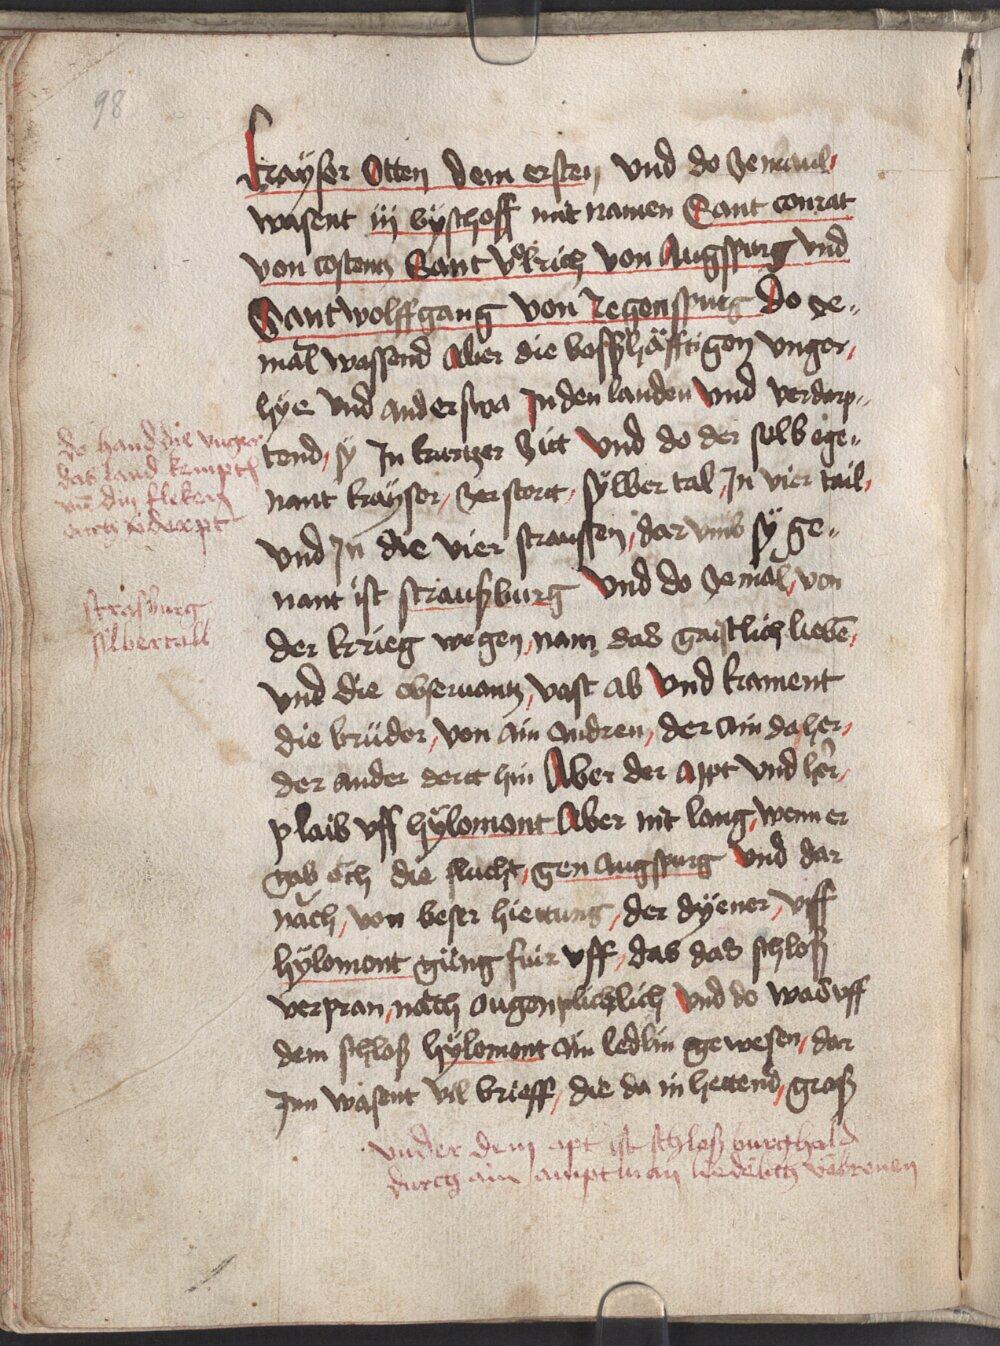 98
kayser Otten dem ersten und do zemaul
wasent iij byschoff mit namen Sant conrat
von costentz Sant Uͦlrich von Augspurg und
Sant wolffgang von Regenspurg Do ze-
mal wassend Aber die boßhäfftigen unger,
hye und anderswa In den landen und verderp-
tend, sy In kurtzer Zitt Und do der selb ege-
nant kayser, zerstoret, sylber tal, In vier tail,
und In die vier straussen, dar umb sy ge-
nant ist straußburg Und do zemal, von
der krieg wegen, nam das gaistlich lieben,
und die obseruantz, vast ab Und kament
die brüder, von ain andren, der ain da her,
der ander dertt hin Aber der Appt und her,
plaib uff hylomont Aber nit lang, wenn er
gab och die flucht, gen Augspurg Und dar
nach, von beser hiettung, der dyener, uff
hylomont gieng für uff, das das schloß
verpran, nach augenplicklich Und do was uff
dem schloß hylomont ain ledlin gewesen, dar
Jnn wasent vil brieff, die da in hettend, groß
do hand die unger
das land kempten
un din fleken
auch verderpt
strasburg
silbertall
under dem apt ist schloß burghald
durch ain amptman